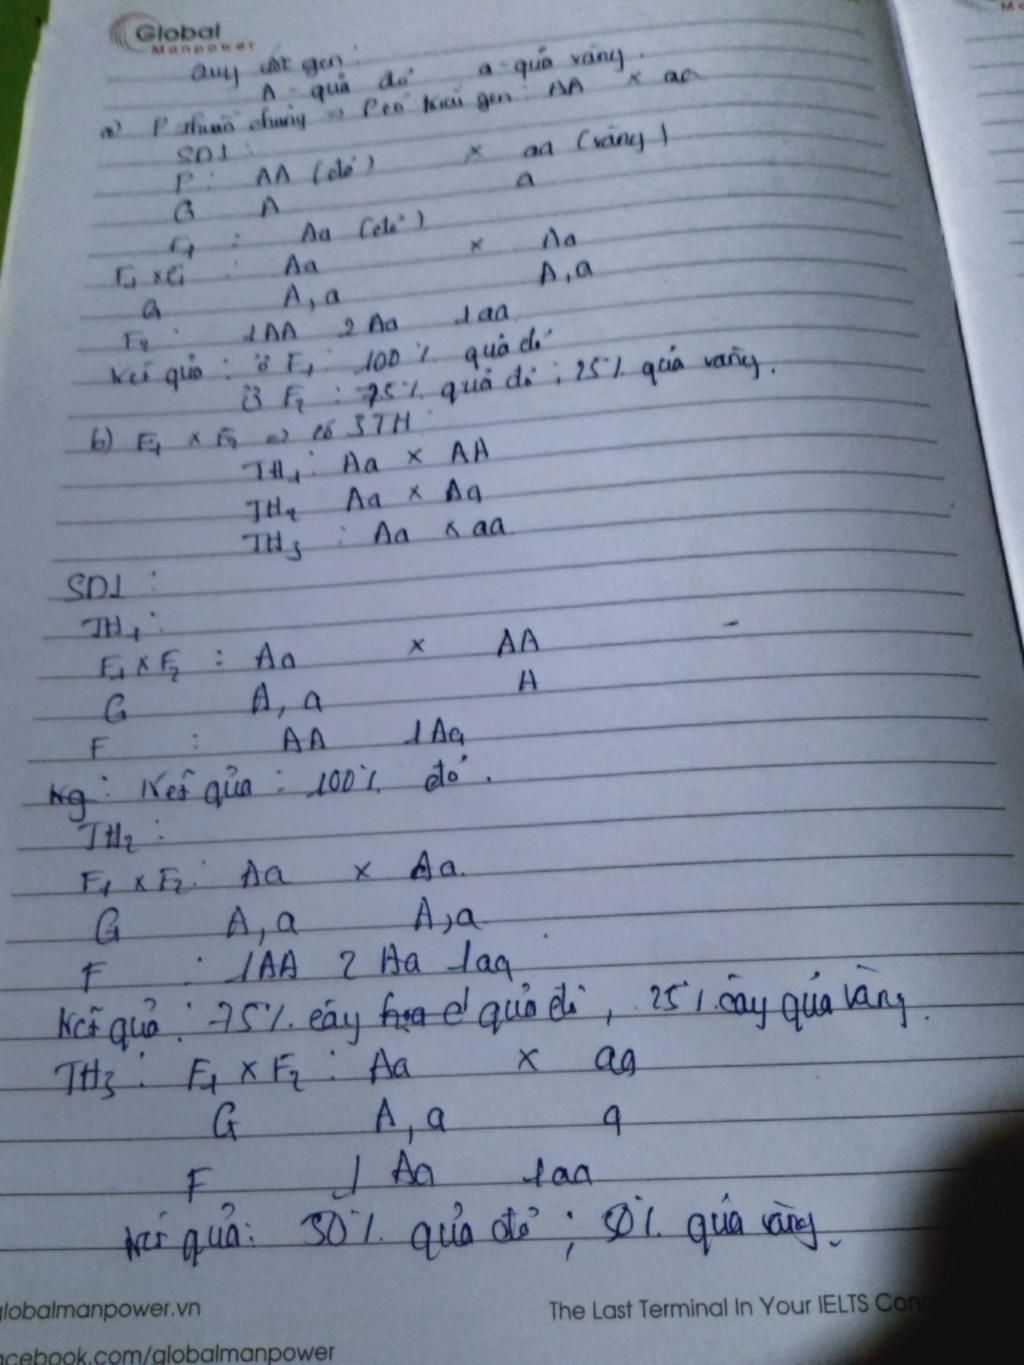 Global
Manpower
Quy ước gen:
A quả đỏ a quả vàng.
a) P thuần chủng => P có kiểu gen: AA × aa
SĐL:
P: AA (đỏ) × aa (vàng)
G A a
F1 : Aa (đỏ)
F1 × F1 : Aa × Aa
G A, a A, a
F2 : 1AA 2Aa 1aa
Kết quả: ở F1: 100% quả đỏ
Ở F2 : 75% quả đỏ; 25% quả vàng.
b) F1 × F2 => có 3TH
TH1: Aa × AA
TH2 Aa × Aa
TH3 : Aa × aa
SĐL :
TH1:
F1 × F2 : Aa × AA
G A, a A
F : AA 1Aa
Kg: Kết quả: 100% đỏ.
TH2 :
F1 × F2: Aa × Aa.
G A, a A, a
F : 1AA 2 Aa 1aa
Kết quả: 75% cây quả đỏ, 25% cây quả vàng.
TH3 : F1 × F2 : Aa × aa
G A, a a
F 1 Aa 1aa
Kết quả: 50% quả đỏ ; 50% quả vàng.
globalmanpower.vn The Last Terminal In Your IELTS
facebook.com/globalmanpower